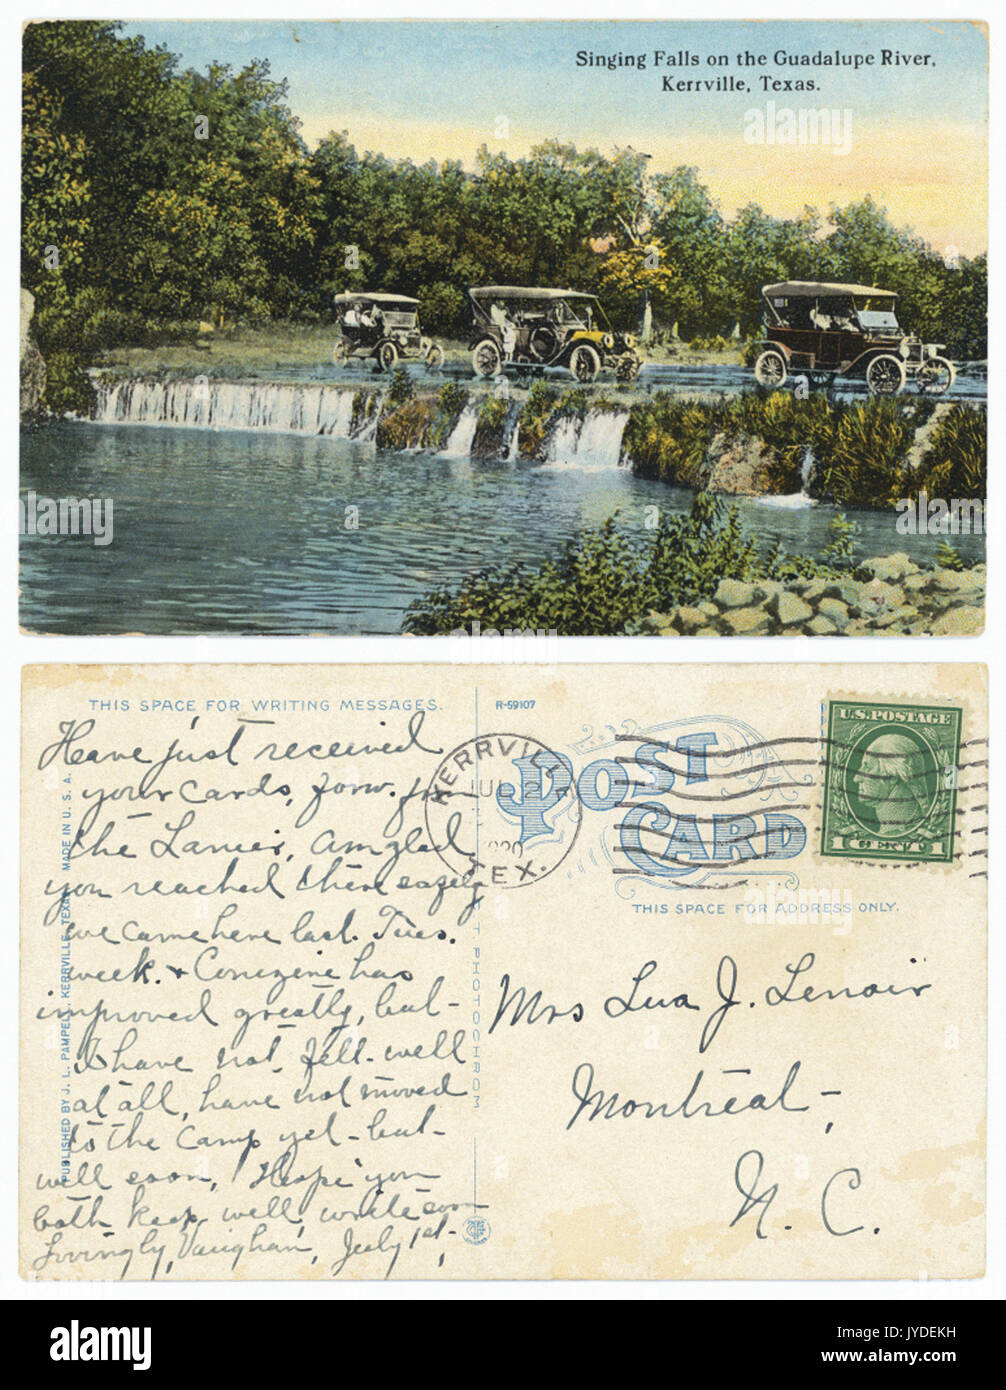 Singing Falls on the Guadalupe River,
Kerrville, Texas.
THIS SPACE FOR WRITING MESSAGES.
Have just received
your cards, forw. from
the Lanier, am glad
you reached there
we came here last Tues.
week. &
has
improved greatly, but-
I have not felt-well
at all, have not moved
to the Camp yet-but-
will soon, Hope you
both keep well, write soon
Lovingly, Vaughan, July 1st,
PUBLISHED BY J. L. PAMPELL, KERRVILLE, TEXAS. MADE IN U. S. A.
PHOTOCHROM
R-59107
POST
CARD
THIS SPACE FOR ADDRESS ONLY.
KERRVILLE
JUL 2
TEX.
U.S. POSTAGE
1 CENT 1
Mrs Lua J. Lenoir
Montreat-,
N. C.
alamy
alamy
Image ID: JYDEKH
www.alamy.com